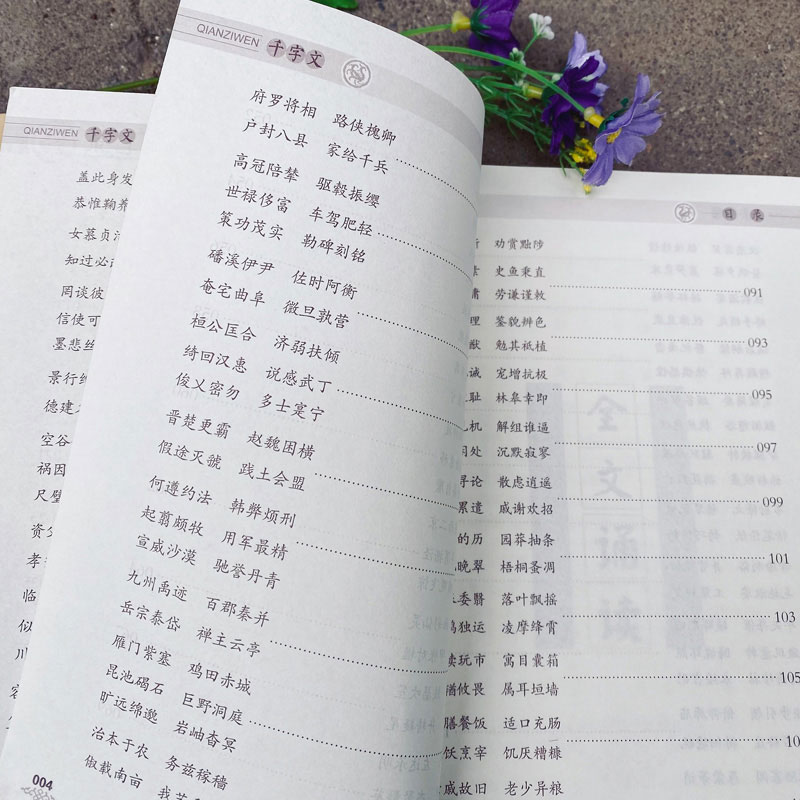 QIANZIWEN 千字文
盖此身发
恭惟鞠养
女慕贞
知过必
罔谈彼
信使可
墨悲丝
景行维
德建
空谷
祸因
尺璧
资父
孝
临
似
川
QIANZIWEN 千字文
府罗将相 路侠槐卿
户封八县 家给千兵
高冠陪辇 驱毂振缨
世禄侈富 车驾肥轻
策功茂实 勒碑刻铭
磻溪伊尹 佐时阿衡
奄宅曲阜 微旦孰营
桓公匡合 济弱扶倾
绮回汉惠 说感武丁
俊乂密勿 多士寔宁
晋楚更霸 赵魏困横
假途灭虢 践土会盟
何遵约法 韩弊烦刑
起翦颇牧 用军最精
宣威沙漠 驰誉丹青
九州禹迹 百郡秦并
岳宗泰岱 禅主云亭
雁门紫塞 鸡田赤城
昆池碣石 巨野洞庭
旷远绵邈 岩岫杳冥
治本于农 务兹稼穑
俶载南亩 我
004
目录
劝赏黜陟
史鱼秉直
劳谦谨敕 091
理 鉴貌辨色
猷 勉其祗植 093
诫 宠增抗极
耻 林皋幸即 095
机 解组谁逼
处 沉默寂寥 097
寻论 散虑逍遥
累遣 戚谢欢招 099
的历 园莽抽条
晚翠 梧桐蚤凋 101
委翳 落叶飘摇
独运 凌摩绛霄 103
读玩市 寓目囊箱
攸畏 属耳垣墙 105
膳餐饭 适口充肠
饫烹宰 饥厌糟糠 10
戚故旧 老少异粮
全文诵读